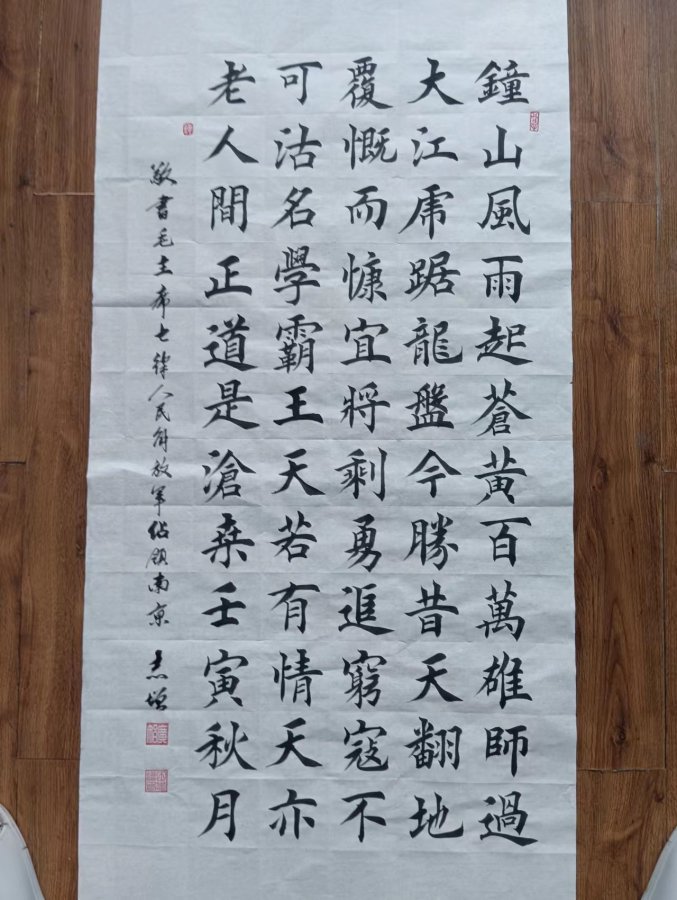 鐘山風雨起蒼黃百萬雄師過
大江虎踞龍盤今勝昔天翻地
覆慨而慷宜將剩勇追窮寇不
可沽名學霸王天若有情天亦
老人間正道是滄桑壬寅秋月
敬書毛主席七律人民解放軍佔領南京